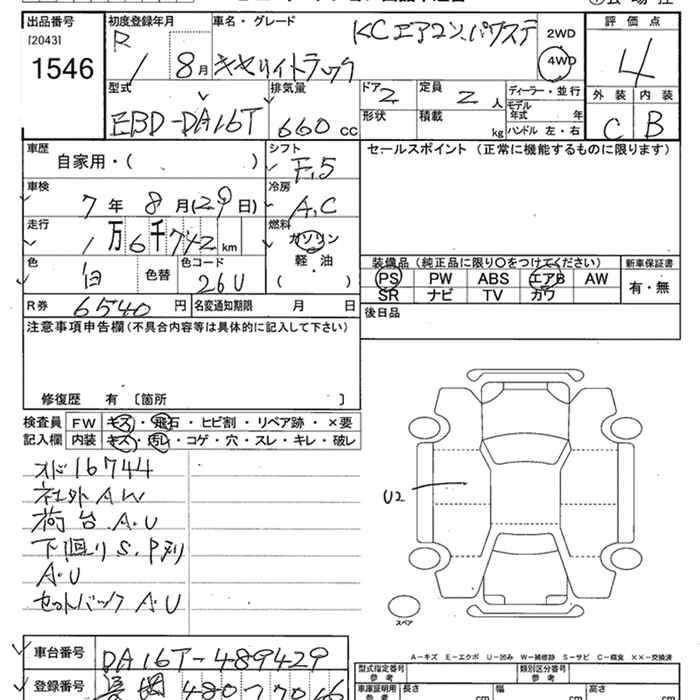 出品番号 初度登録年月 車名・グレード KCエアコン.パワステ 2WD 評価点
[2043] R 4WD
1546 1 8月 キャリイトラック 4
型式 排気量 ドア 2 定員 2人 ディーラー・並行 外装 内装
EBD-DA16T 660cc 形状 積載 kg モデル年式 年 C B
ハンドル 左・右
車歴 シフト セールスポイント (正常に機能するものに限ります)
自家用・( ) F.5
車検 冷房
7年 8月(29日) A.C
走行 燃料
1万6千742km ガソリン
軽・油 装備品 (純正品に限り○をつけてください) 新車保証書
色 白 色替 色コード 26U ( ) PS PW ABS エアB AW 有・無
SR ナビ TV カワ
R券 6540円 名変通知期限 月 日 後日品
注意事項申告欄(不具合内容等は具体的に記入して下さい)
修復歴 有 〔箇所 〕
検査員 FW キズ・飛石・ヒビ割・リペア跡・×要
記入欄 内装 キズ・汚レ・コゲ・穴・スレ・キレ・破レ
オド16744
社外AW U2
荷台A.U
下廻りS.Pアリ
A.U
セットバックA.U
スペア
車台番号 DA16T-489429 A-キズ E-エクボ U-凹み W-補修跡 S-サビ C-腐食 ××-交換済
型式指定番号 参考 類別区分番号 参考
登録番号 480 車庫証明用 参考 長さ cm 幅 cm 高さ cm